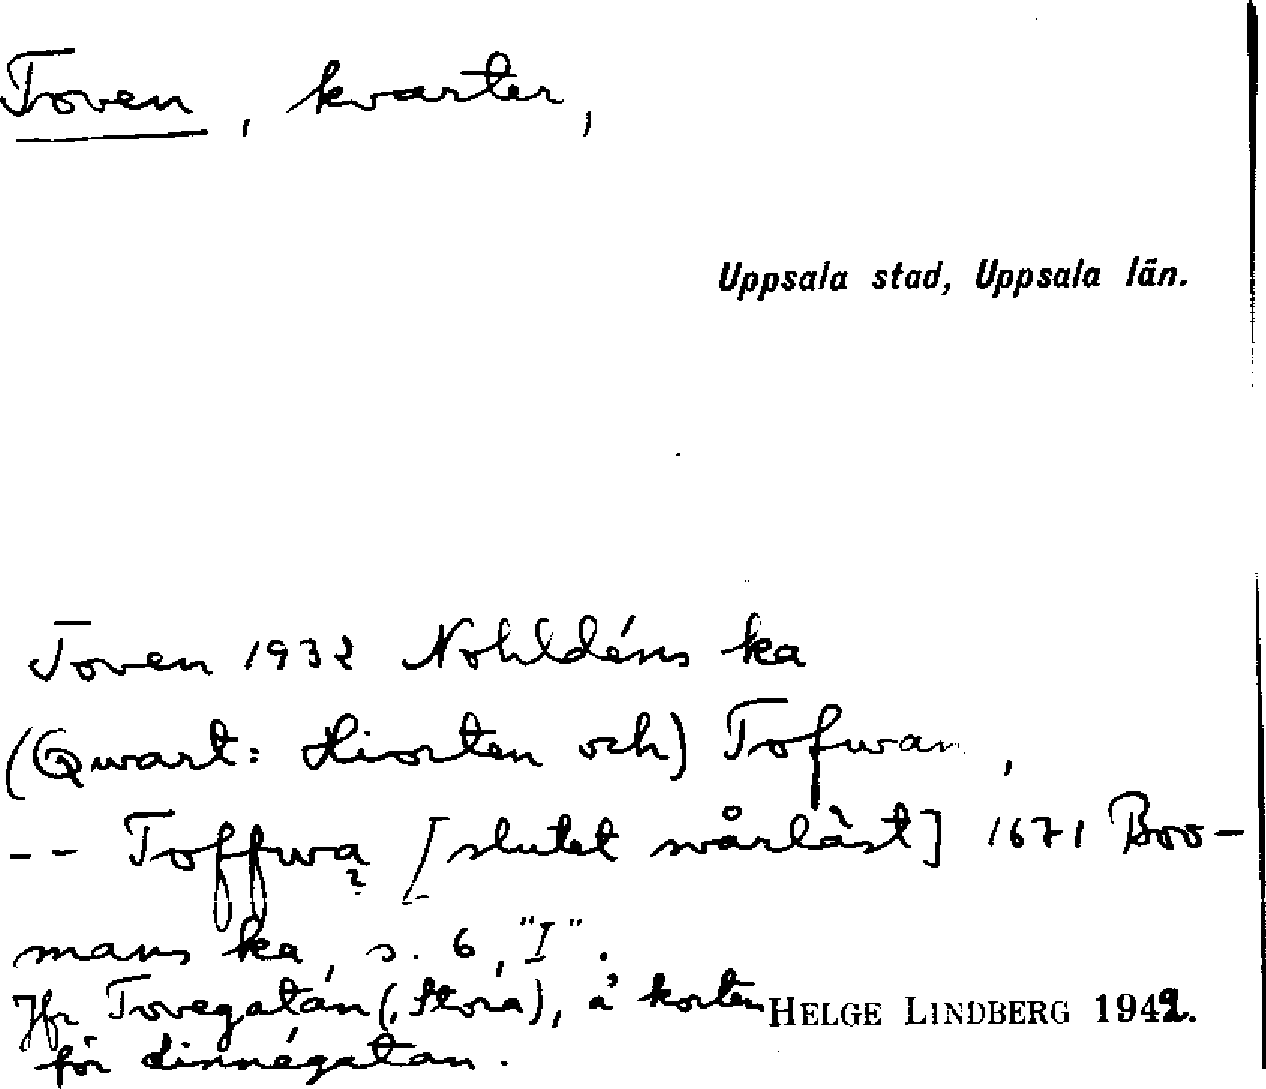 Toven, kvarter,
Uppsala stad, Uppsala län.
Toven 1932 Nohldéns ka
(Qwart: Hiorten och) Tofwan,
-- Toffwa [slutet svårläst] 1671 Boo-
mans ka, s. 6, "I".
Jfr Tovegatan (, Stora), å korten
HELGE LINDBERG 1942.
för Linnégatan.